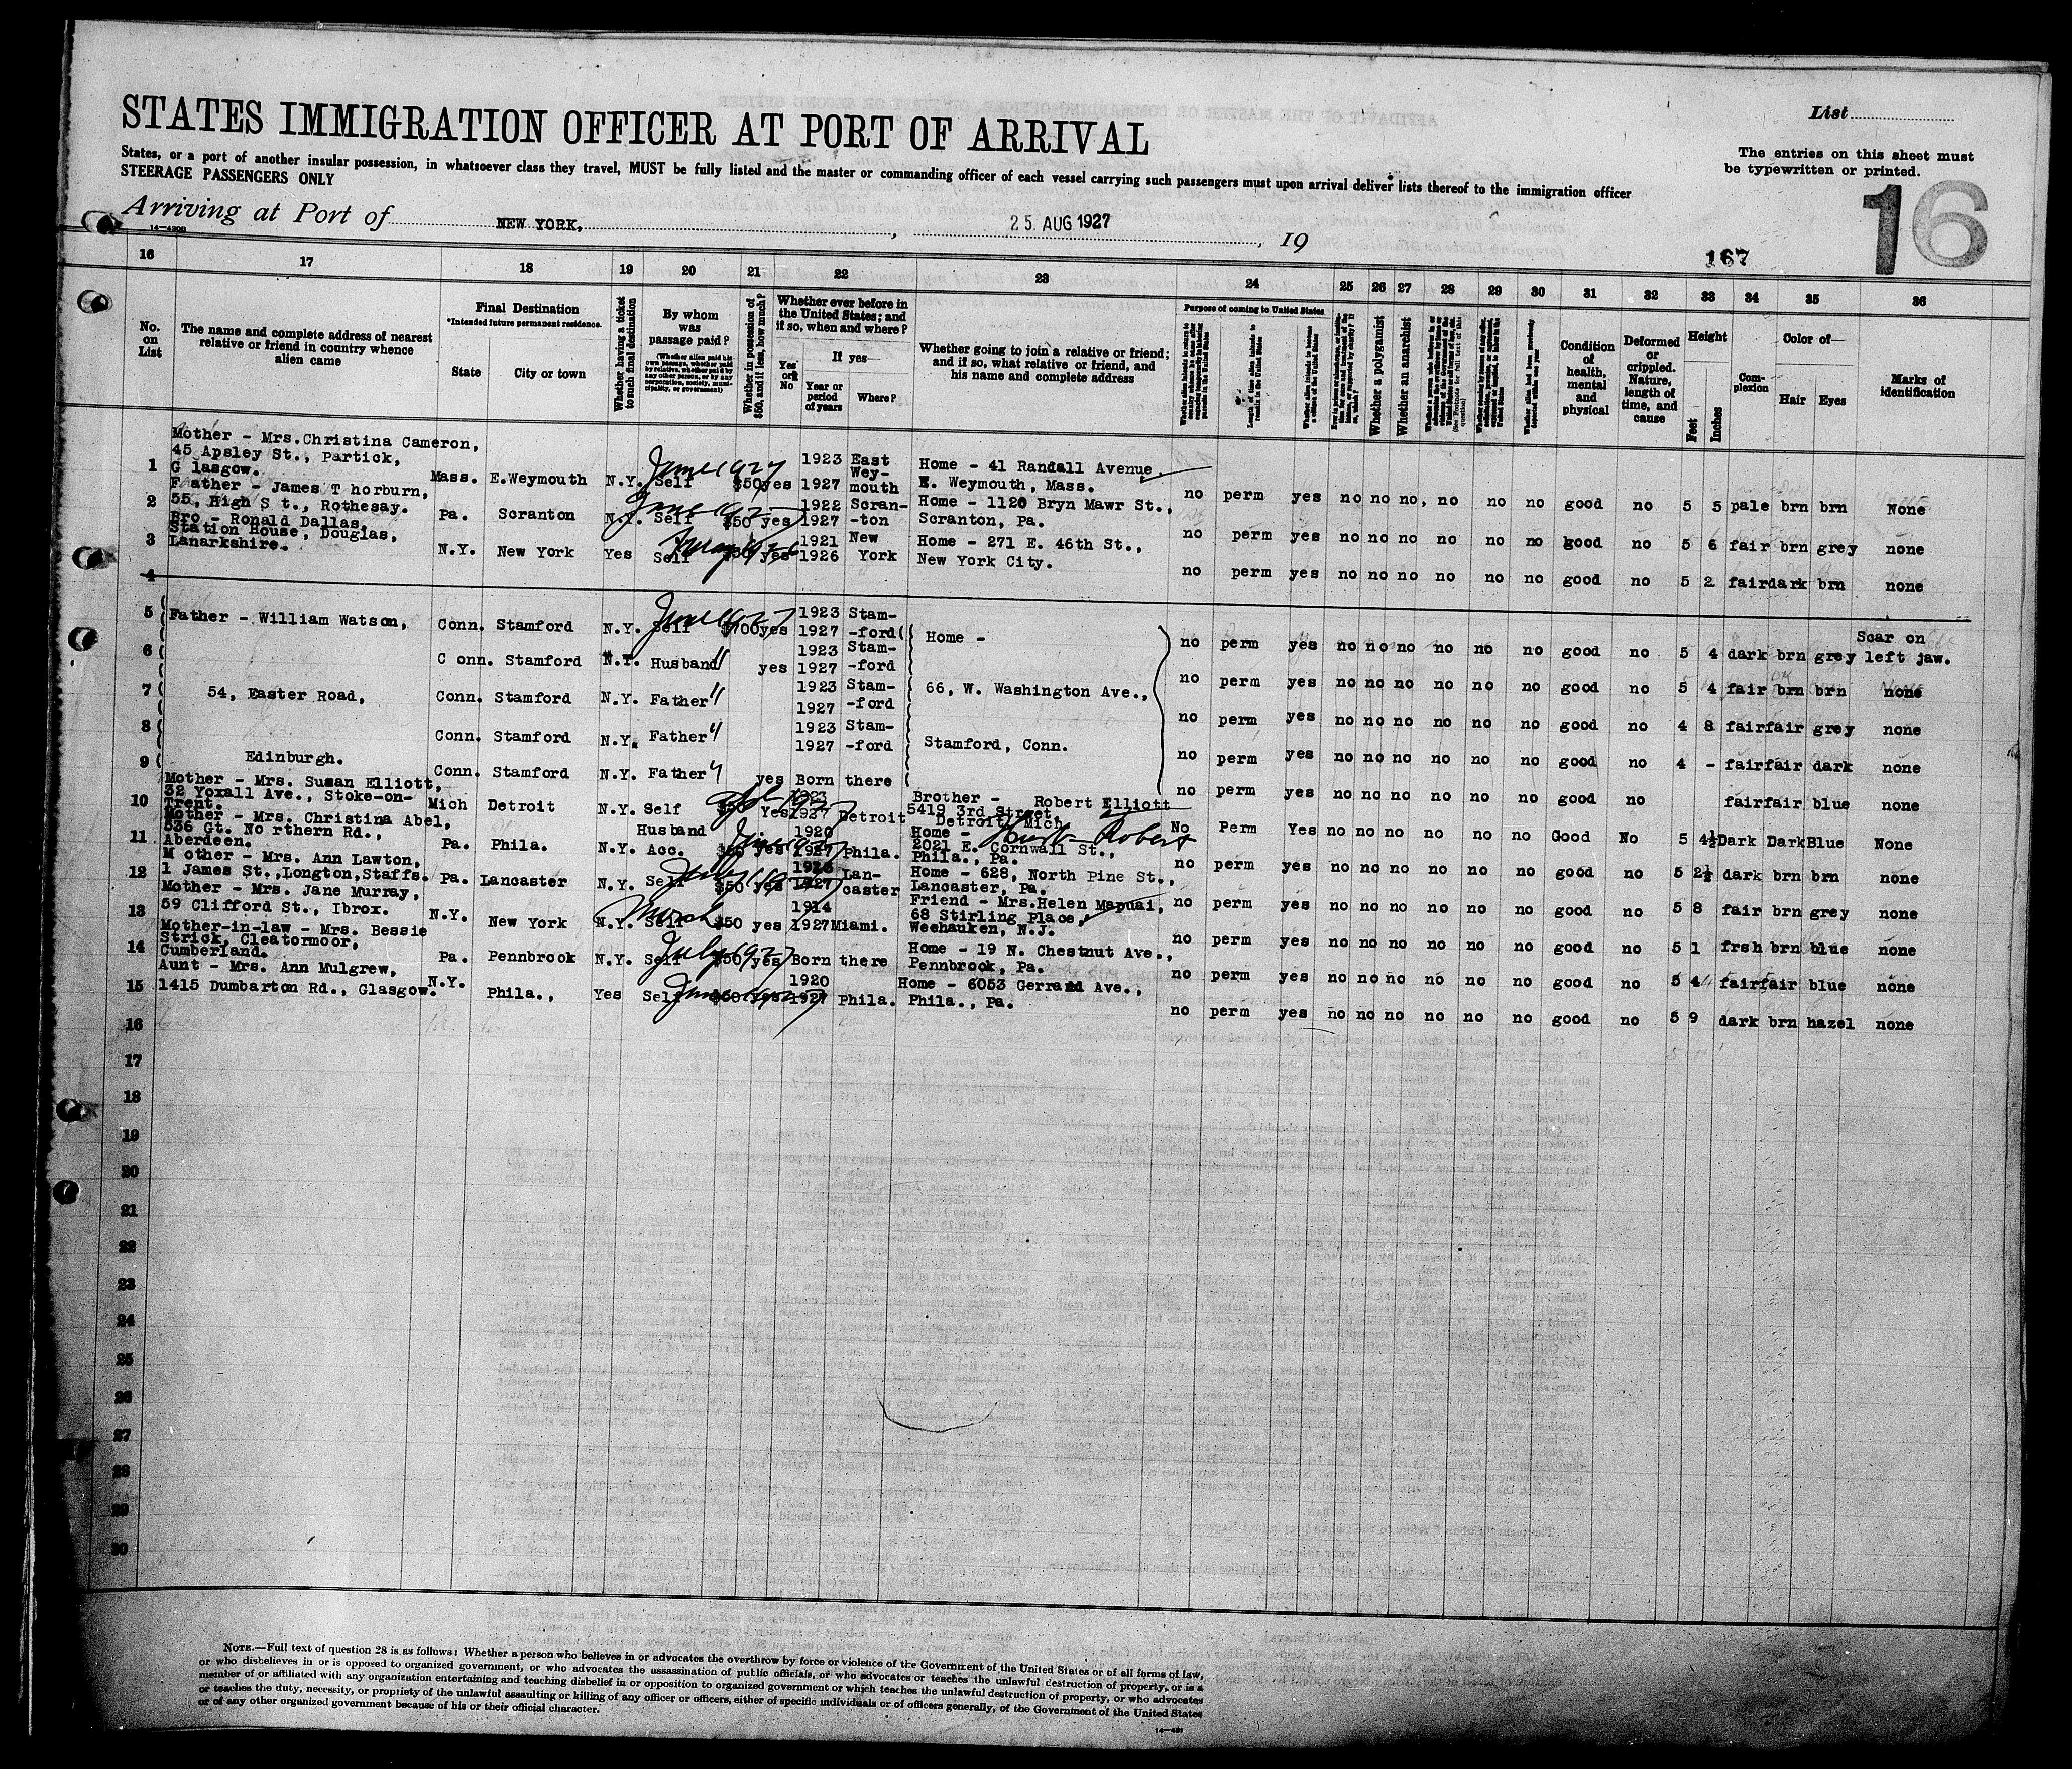 STATES IMMIGRATION OFFICER AT PORT OF ARRIVAL
List
States, or a port of another insular possession, in whatsoever class they travel, MUST be fully listed and the master or commanding officer of each vessel carrying such passengers must upon arrival deliver lists thereof to the immigration officer
STEERAGE PASSENGERS ONLY
The entries on this sheet must
be typewritten or printed.
16
Arriving at Port of NEW YORK, , 25 AUG 1927, 19
14-430B
167
16 17 18 19 20 21 22 23 24 25 26 27 28 29 30 31 32 33 34 35 36
No. on List
The name and complete address of nearest relative or friend in country whence alien came
Final Destination
*Intended future permanent residence.
State
City or town
Whether having a ticket to such final destination
By whom was passage paid?
(Whether alien paid his own passage, whether paid by relative, whether paid by any other person, or by any corporation, society, municipality, or government)
Whether in possession of $50, and if less, how much?
Whether ever before in the United States; and if so, when and where?
Yes or No
If yes—
Year or period of years
Where?
Whether going to join a relative or friend; and if so, what relative or friend, and his name and complete address
Purpose of coming to United States
Whether a polygamist
Whether an anarchist
Condition of health, mental and physical
Deformed or crippled. Nature, length of time, and cause
Height
Feet
Inches
Complexion
Color of—
Hair
Eyes
Marks of identification
1 Mother - Mrs.Christina Cameron,
45 Apsley St., Partick,
G lasgow.
Mass. E.Weymouth N.Y. Self $50 yes 1923 1927 East Wey-mouth
June 1927
Home - 41 Randall Avenue
E. Weymouth, Mass.
no perm yes no no no, no no no good no 5 5 pale brn brn None
2 Father - James T horburn,
55, High S t., Rothesay.
Pa. Scranton N.Y. Self $50 yes 1922 1927 Scran-ton
Home - 1120 Bryn Mawr St.,
Scranton, Pa.
no perm yes no no no no no no good no 5 6 fair brn grey none
3 Bro - Ronald Dallas,
Station House, Douglas,
Lanarkshire.
N.Y. New York Yes Self yes 1921 1926 New York
Home - 271 E. 46th St.,
New York City.
no perm yes no no no no no no good no 5 2 fair dark brn none
4
5 Father - William Watson,
Conn. Stamford N.Y. Self $700 yes 1923 1927 Stam-ford
June 1927
Home -
no perm yes no no no no no no good no 5 4 dark brn grey Scar on left jaw.
6 C onn. Stamford N.Y. Husband " yes 1923 1927 Stam-ford
no perm yes no no no no no no good no 5 4 fair brn brn none
7 54, Easter Road,
Conn. Stamford N.Y. Father " 1923 1927 Stam-ford
66, W. Washington Ave.,
no perm yes no no no no no no good no 4 8 fair fair grey none
8 Conn. Stamford N.Y. Father " 1923 1927 Stam-ford
Stamford, Conn.
no perm yes no no no no no no good no 4 - fair fair dark none
9 Edinburgh.
Conn. Stamford N.Y. Father " yes Born there
no perm yes no no no no no no good no fair fair blue none
10 Mother - Mrs. Susan Elliott,
32 Yoxall Ave., Stoke-on-
Trent.
Mich Detroit N.Y. Self Yes 1923 1927 Detroit
Brother - Robert Elliott
5419 3rd Street,
Detroit, Mich
No Perm Yes no no no no no no Good No 5 4½ Dark Dark Blue None
11 Mother - Mrs. Christina Abel,
536 Gt. No rthern Rd.,
Aberdeen.
Pa. Phila. N.Y. Husband Acc. $50 yes 1920 1927 Phila.
Home -
2021 E. Cornwall St.,
Phila., Pa.
Robert
no perm yes no no no no no no good no 5 2½ dark brn brn none
12 M other - Mrs. Ann Lawton,
1 James St.,Longton,Staffs.
Pa. Lancaster N.Y. Self $50 yes 1927 Lan-caster
Home - 628, North Pine St.,
Lancaster, Pa.
no perm yes no no no no no no good no 5 8 fair brn grey none
13 Mother - Mrs. Jane Murray,
59 Clifford St., Ibrox.
N.Y. New York N.Y. Self $50 yes 1914 1927 Miami.
March
Friend - Mrs.Helen Mapuai,
68 Stirling Place,
Weehauken, N.J.
no perm yes no no no no no no good no 5 1 frsh brn blue none
14 Mother-in-law - Mrs. Bessie
Strick, Cleatormoor,
Cumberland.
Pa. Pennbrook N.Y. Self $50 yes Born there
July 1927
Home - 19 N. Chestnut Ave.,
Pennbrook, Pa.
no perm yes no no no no no no good no 5 4 fair fair blue none
15 Aunt - Mrs. Ann Mulgrew,
1415 Dumbarton Rd., Glasgow.
N.Y. Phila., Yes Self yes 1920 1927 Phila.
Home - 6053 Gerrard Ave.,
Phila., Pa.
no perm yes no no no no no no good no 5 9 dark brn hazel none
16
17
18
19
20
21
22
23
24
25
26
27
28
29
30
NOTE.—Full text of question 28 is as follows: Whether a person who believes in or advocates the overthrow by force or violence of the Government of the United States or of all forms of law,
or who disbelieves in or is opposed to organized government, or who advocates the assassination of public officials, or who advocates or teaches the unlawful destruction of property, or is a
member of or affiliated with any organization entertaining and teaching disbelief in or opposition to organized government or which teaches the unlawful destruction of property, or who advocates
or teaches the duty, necessity, or propriety of the unlawful assaulting or killing of any officer or officers, either of specific individuals or of officers generally, of the Government of the United States
or of any other organized government because of his or their official character.
14-431